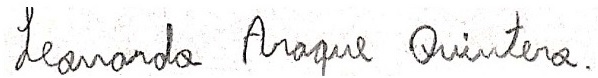 Leonardo Araque Quintero.